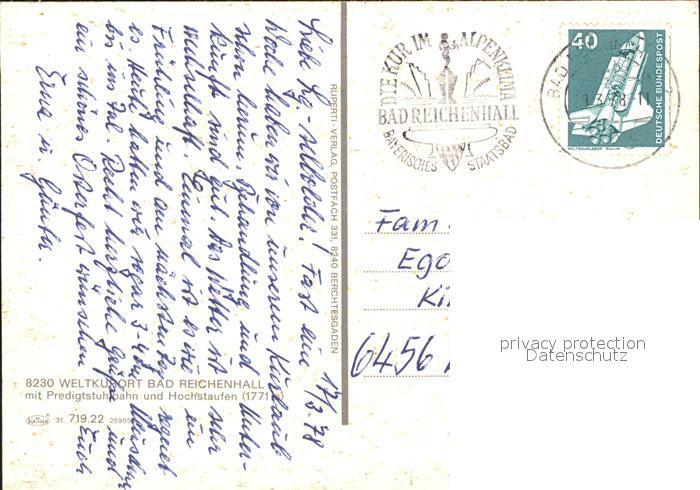 17/3. 78
Liebe Fam. Fast eine
Woche haben wir von unserem Kurlaub
schon herum. Behandlung und Unter-
kunft sind gut. Das Wetter ist sehr
wechselhaft. Einmal ist es wie ein
Frühling und am nächsten Tag regnet
es. Heute hatten wir sogar 3-4 cm
bis ins Tal. Recht herzliche Grüße und
ein schönes Osterfest wünschen Euch
Erna u. Günter.
RUPERTI-VERLAG, POSTFACH 331, 8240 BERCHTESGADEN
8230 WELTKURORT BAD REICHENHALL
mit Predigtstuhlbahn und Hochstaufen (1771 m)
Krüger 31. 719.22 25955
DIE KUR IM ALPENKLIMA
BAD REICHENHALL
BAYERISCHES STAATSBAD
BAD
40
DEUTSCHE BUNDESPOST
WELTRAUMLABOR
Fam.
Ego
Ki
6456
privacy protection
Datenschutz